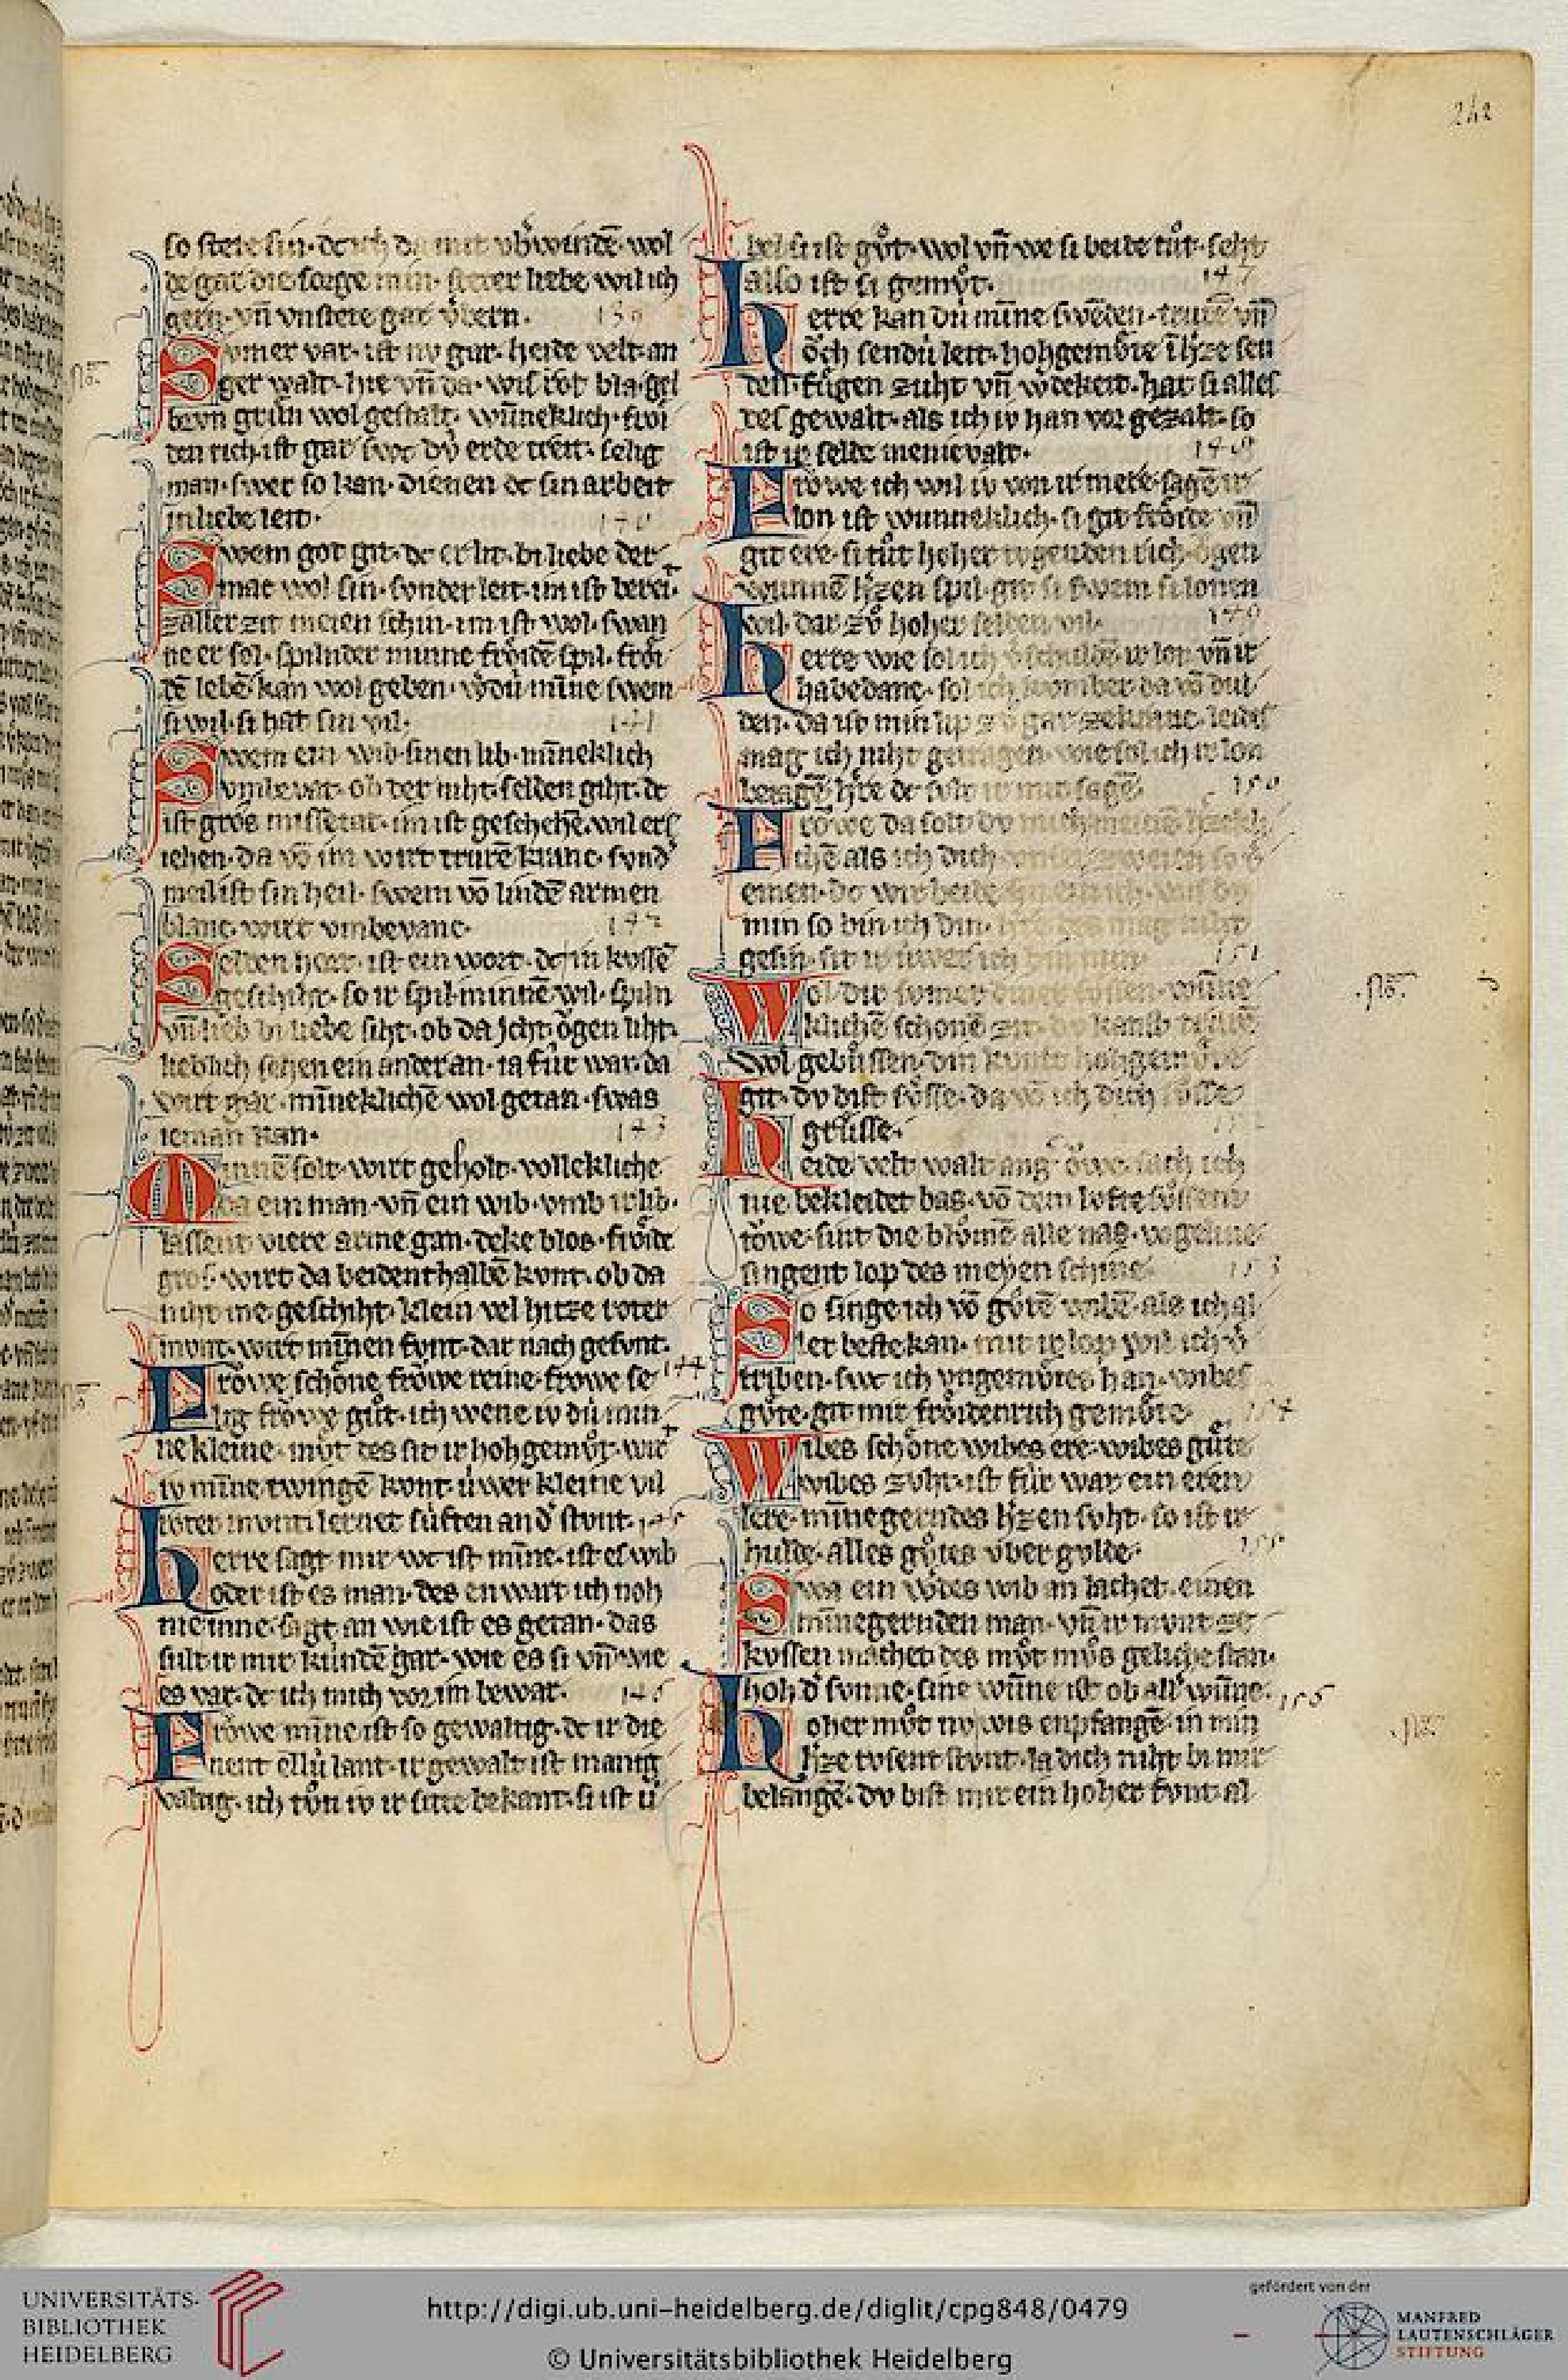 242
so stete sin · dc ich da mit vb̾windē · wol
de gar die sorge min · steter liebe wil ich
gern · vn̄ vnstete gar v̾bern ·
139
Svmer var · ist nv gar · heide velt · an
ger walt · hie vn̄ da · wis rot bla · gel
brvn grůn wol gestalt · wn̄neklich · froͤi
den rich · ist gar swc dv́ erde treit · selig
man · swer so kan · dienen dc sin arbeit
in liebe leit ·
140
Swem got git · dc er lit · bi liebe der
mac wol sin · svnder leit · im ist bereit
zaller zit meien schin · im ist wol · swan
ne er sol · spilnder minne froͤidē spil · froͤi
dē lebē · kan wol geben · v̾ dú mīne swem
si wil · si hat sin vil ·
141
Swem ein wib · sinen lib · mīneklich
vmbevat · ob der niht · selden giht · dc
ist gros missetat · im ist geschehē · wil ers
iehen · da vō im wirt trurē kranc · svnd̾
meil ist sin heil · swem vō lindē armen
blanc · wirt vmbevanc ·
142
Selden hort · ist ein wort · dc in kvssē
geschiht · so ir spil · minnē wil · spiln
vn̄ lieb bi liebe liht · ob da icht oͮgen liht
lieblich sehen ein ander an · ia fúr war · da
wirt gar · mīneklichē wol getan · swas
ieman kan ·
143
Minnē solt · wirt geholt · volleklich
da ein man · vn̄ ein wib · vmb ir lib ·
lassent viere arme gan · deke blos · froͤide
gros · wirt da beidenthalbē kvnt · ob da
niht me geschiht · klein vel hitze roter
mvnt · wirt mīnen wnt · dar nach gesvnt ·
144
Froͮwe schone froͮwe reine · froͮwe se
lig froͮwe gůt · ich wene iv dú min
ne kleine · mv̊t des sit ir hohgemv̊t · wie
iv mīne twingē kvnt · úwer kleine vil
roter mvnt lernet súften and̾ stvnt ·
145
Herre sagt mir wc ist mīne · ist es wib
oder ist es man · des en wart ich noh
nie inne · sagt an wie ist es getan · das
sult ir mir kúndē gar · wie es si vn̄ wie
es var · dc ich mich vor im bewar ·
146
Froͮwe mīne ist so gewaltig · dc ir die
nent ellú lant · ir gewalt ist manig
valtig · ich tv̊n iv ir sitte bekant · si ist ú
bel si ist gůt · wol vn̄ we si beide tůt · seht
also ist si gemv̊t ·
147
Herre kan dú mīne swēden · trurē vn̄
oͮch sendú leit · hohgemv̊te ī h̾ze sen
den · fůgen zuht vn̄ w̾dekeit · hat si alles
des gewalt · als ich iv han vor gezalt · so
ist ir selde menicvalt ·
148
Froͮwe ich wil iv von ir mere sagē · ir
lon ist wunneklich · si git froͤide vn̄
git ere · si tůt hoher tvgenden rich · oͮgen
wunnē h̾zen spil · git si swem si lonen
wil · dar zv̊ hoher selden vil ·
149
Herre wie sol ich v̾schuldē · ir lon vn̄ ir
habedanc · sol ich kvmber da vō dul
den · da ist min lip zv̊ gar ze kranc · leides
mag ich niht getragen · wie sol ich ir lon
beiagē · h̾re dc sult ir mir sagē ·
150
Froͮwe da solt dv
chē als ich dich
emen · dc wir beide
min so bin ich din ·
gesin · sit ir úwer ich bin min ·
151
Wol dir svmer diner svssen · wūne
klichē schonē zit · dv kanst
wol gebůssen · din kvnft hohgemv̊te
git · dv bist sv̊sse · da vō ich dich sv̊sse
grůsse ·
152
Heide velt walt ang̾ oͮwe · sach ich
nie bekleidet bas · vō dem lvfte sv̊ssem
toͮwe · sint die blv̊mē alle nas · vogeline
singent lop des meyen schine ·
153
So singe ich vō gv̊tē wibē · als ich al
ler beste kan · mit ir lop wil ich v̾
triben · swc ich vngemv̊tes han · wibes
gv̊te · git mir froͤidenrich gemv̊te ·
154
Wibes schone wibes ere · wibes gůte
wibes zvht · ist fúr war ein eren
lere · mīnegerndes h̾zen svht · so ist ir
hulde · alles gv̊tes vber gvlde ·
155
Swa ein w̾des wib an lachet · einen
mīnegernden man · vn̄ ir mvnt ze
kvssen machet · des mv̊t mv̊s geliche stan ·
hoh d̾ svnne · sine wn̄ne ist ob all̾ wn̄ne ·
156
Hoher mv̊t nv wis enpfangē · in min
h̾ze tvsent stvnt · la dich niht bi mir
belangē · dv bist mir ein hoher fvnt · al
UNIVERSITÄTS-
BIBLIOTHEK
HEIDELBERG
http://digi.ub.uni-heidelberg.de/diglit/cpg848/0479
© Universitätsbibliothek Heidelberg
gefördert von der
MANFRED
LAUTENSCHLÄGER
STIFTUNG